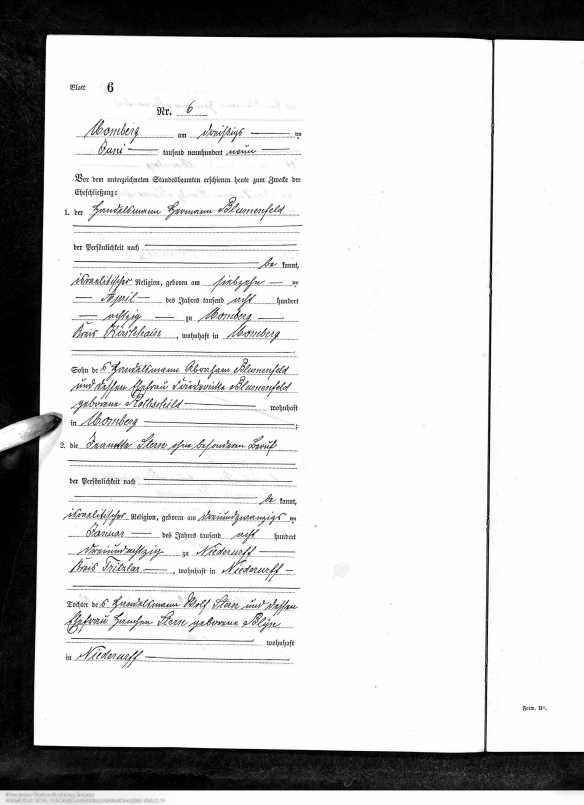 Blatt 6
Nr. 6
Momberg am dreißigsten
Juni tausend neunhundert neun
Vor dem unterzeichneten Standesbeamten erschienen heute zum Zwecke der
Eheschließung:
1. der Handelsmann Hermann Blumenfeld
der Persönlichkeit nach
be kannt,
israelitischer Religion, geboren am siebzehn ten
April des Jahres tausend acht hundert
achtzig zu Momberg
Kreis Kirchhain, wohnhaft in Momberg
;
Sohn des Handelsmann Abraham Blumenfeld
und dessen Ehefrau Friedericke Blumenfeld
geborene Rothschild wohnhaft
in Momberg ;
2. die Jeanette Stern ohne besonderen Beruf
der Persönlichkeit nach
be kannt,
israelitischer Religion, geboren am dreiundzwanzigs ten
Januar des Jahres tausend acht hundert
dreiundachtzig zu Niederurff
Kreis Fritzlar, wohnhaft in Niederurff
Tochter des Handelsmann Wolf Stern und dessen
Ehefrau Hannchen Stern geborene
wohnhaft
in Niederurff
Form. B